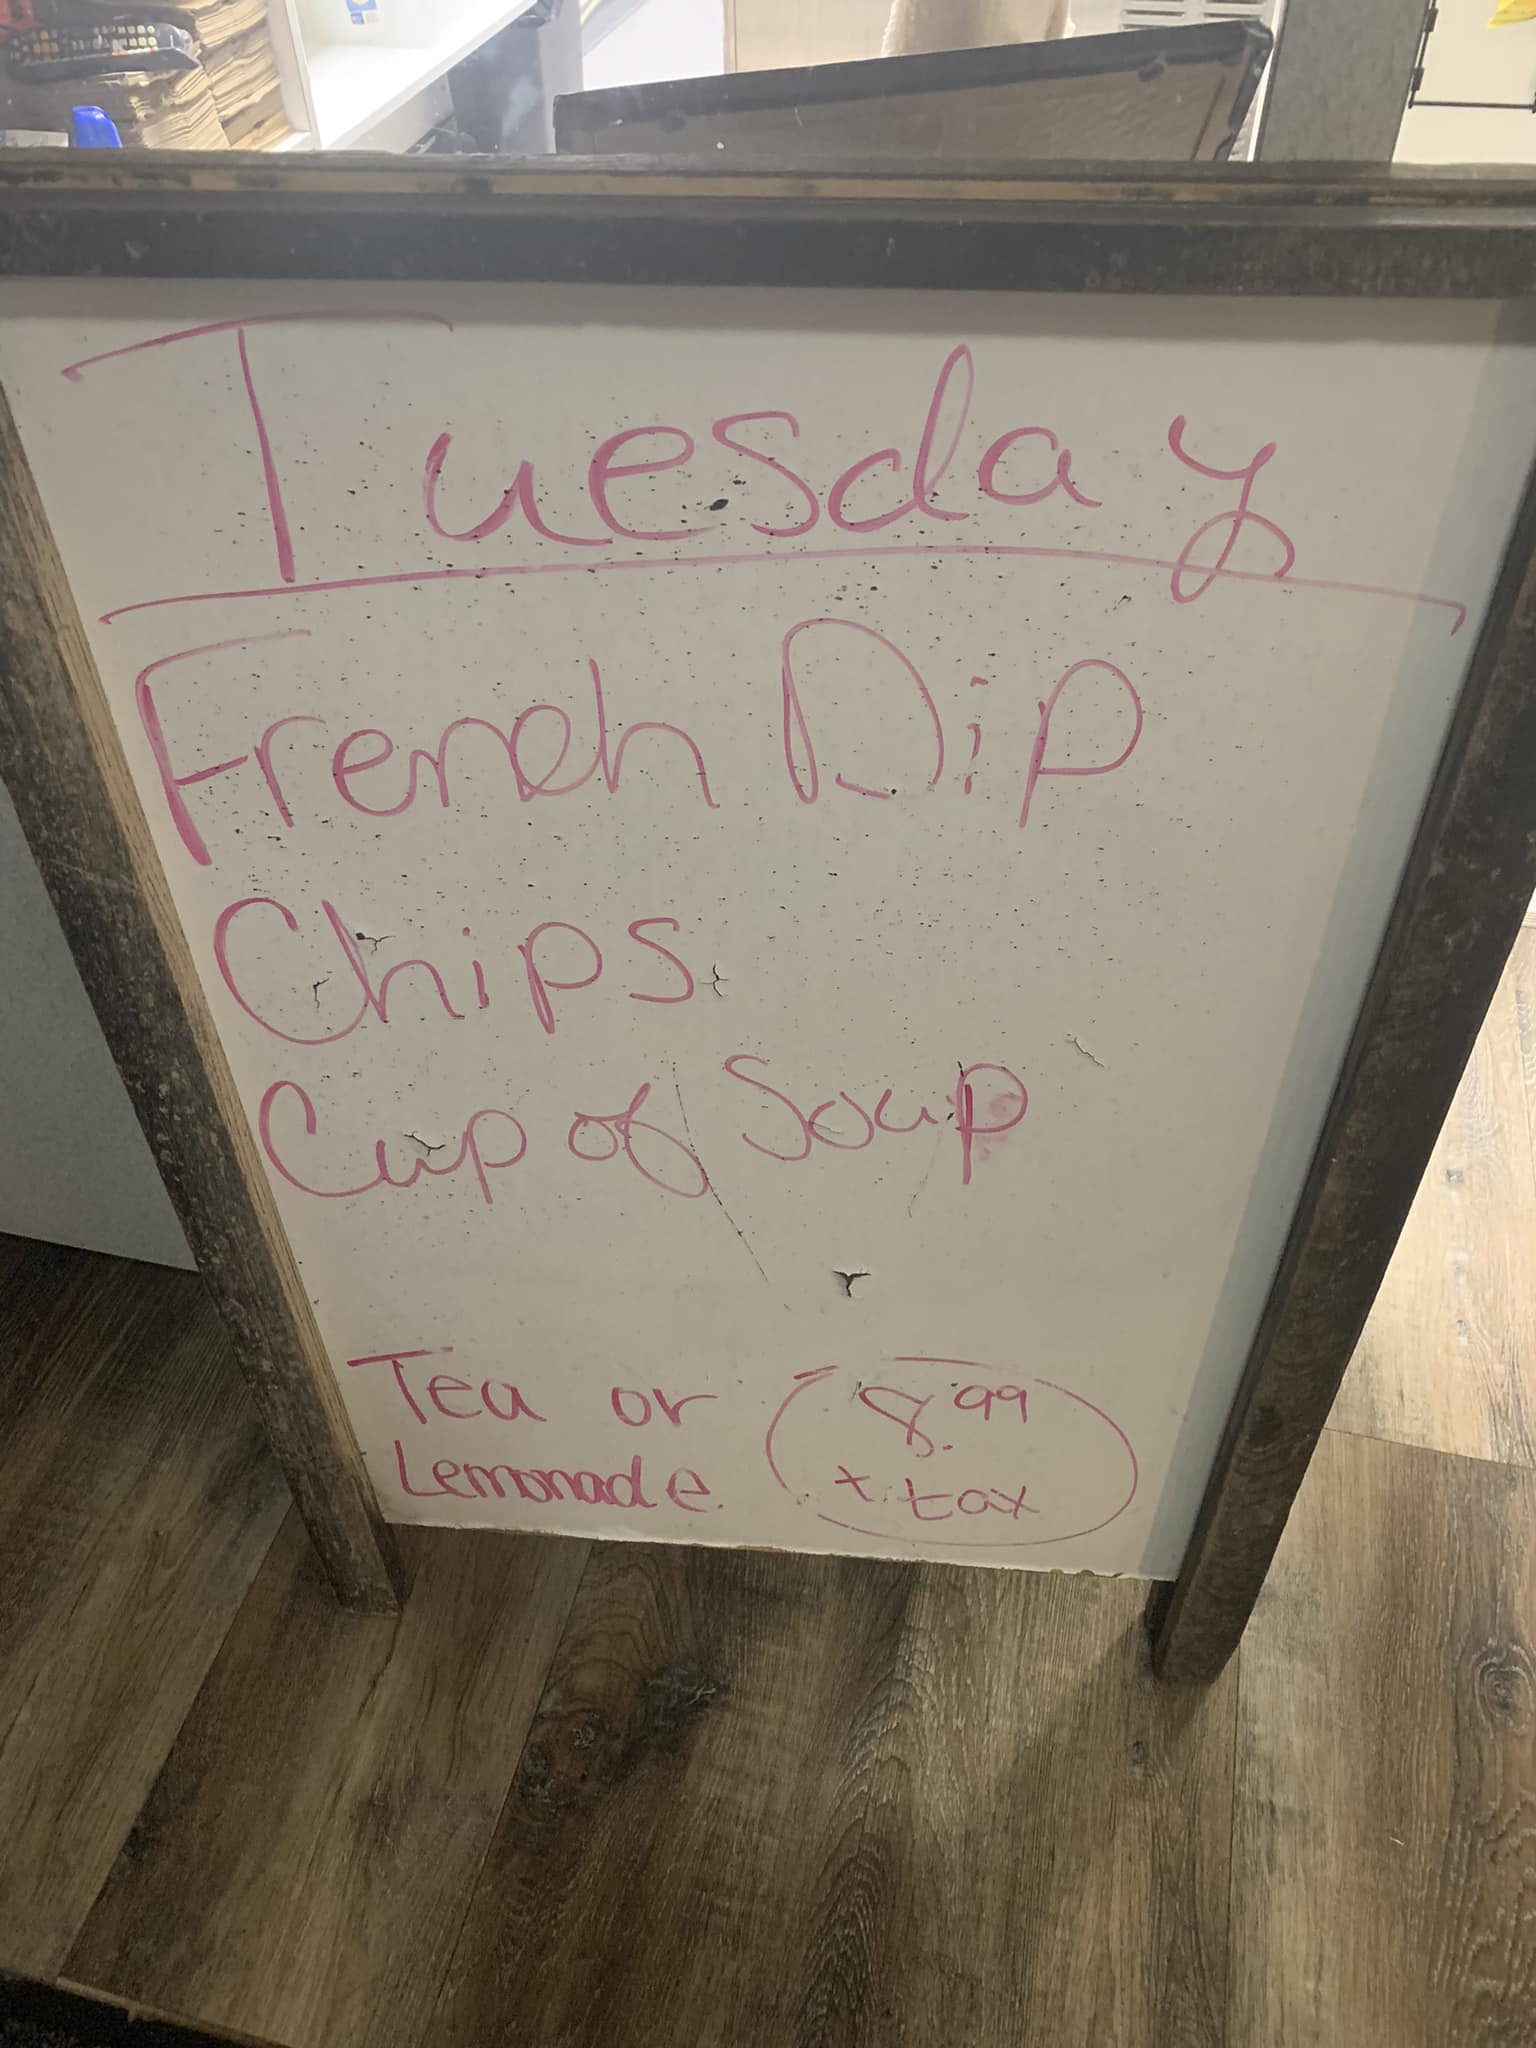 Tuesday
French Dip
Chips
Cup of Soup
Tea or
Lemonade
8.99
+ tax